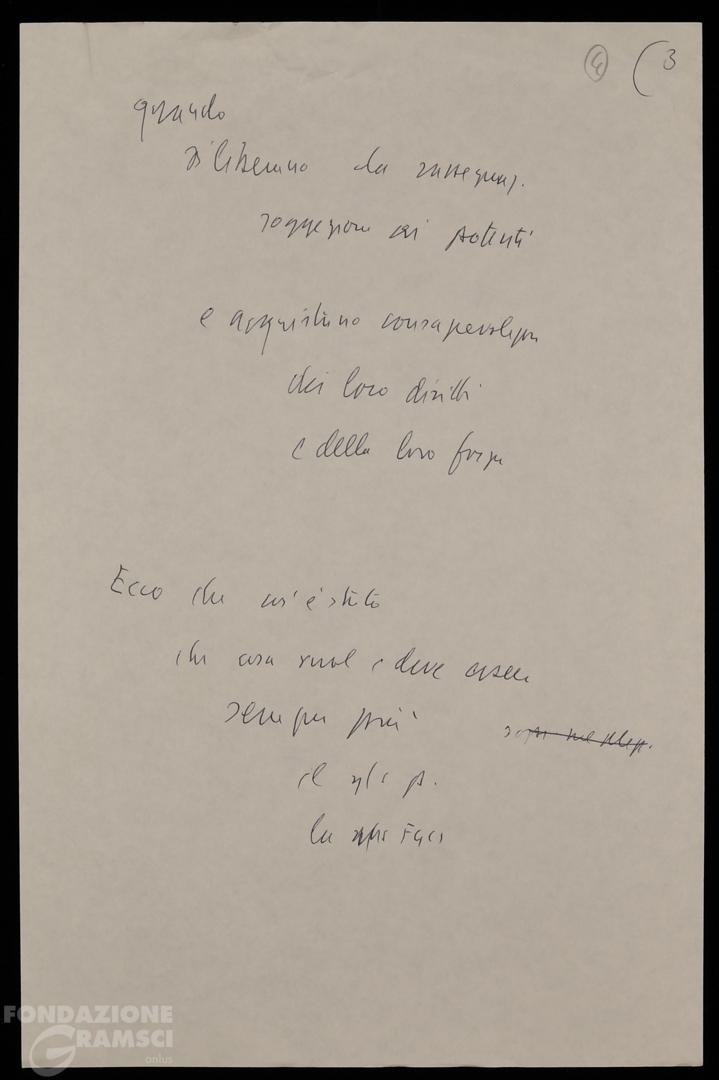 4 (3
quando
si liberano da rassegnaz.
soggezione ai potenti
e acquistano consapevolezza
dei loro diritti
e della loro forza
Ecco che cos'è stato
che cosa vuole e deve essere
sempre più
il ns p.
la
FONDAZIONE
GRAMSCI
onlus